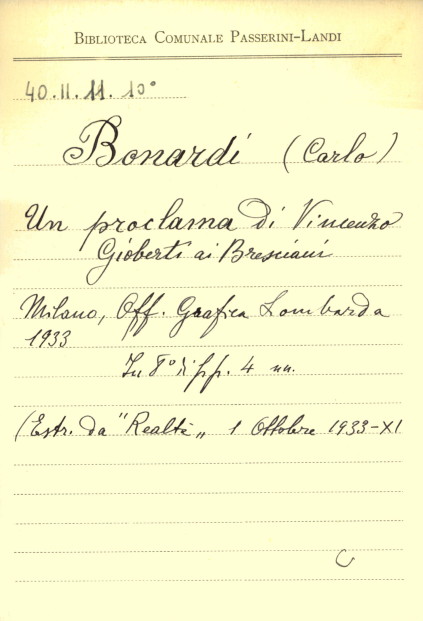 BIBLIOTECA COMUNALE PASSERINI-LANDI
40.II.11.10°
Bonardi (Carlo)
Un proclama di Vincenzo
Gioberti ai Bresciani
Milano, Off. Grafica Lombarda
1933
In 8° di pp. 4 nn.
(Estr. da "Realtà„ 1 Ottobre 1933-XI
C